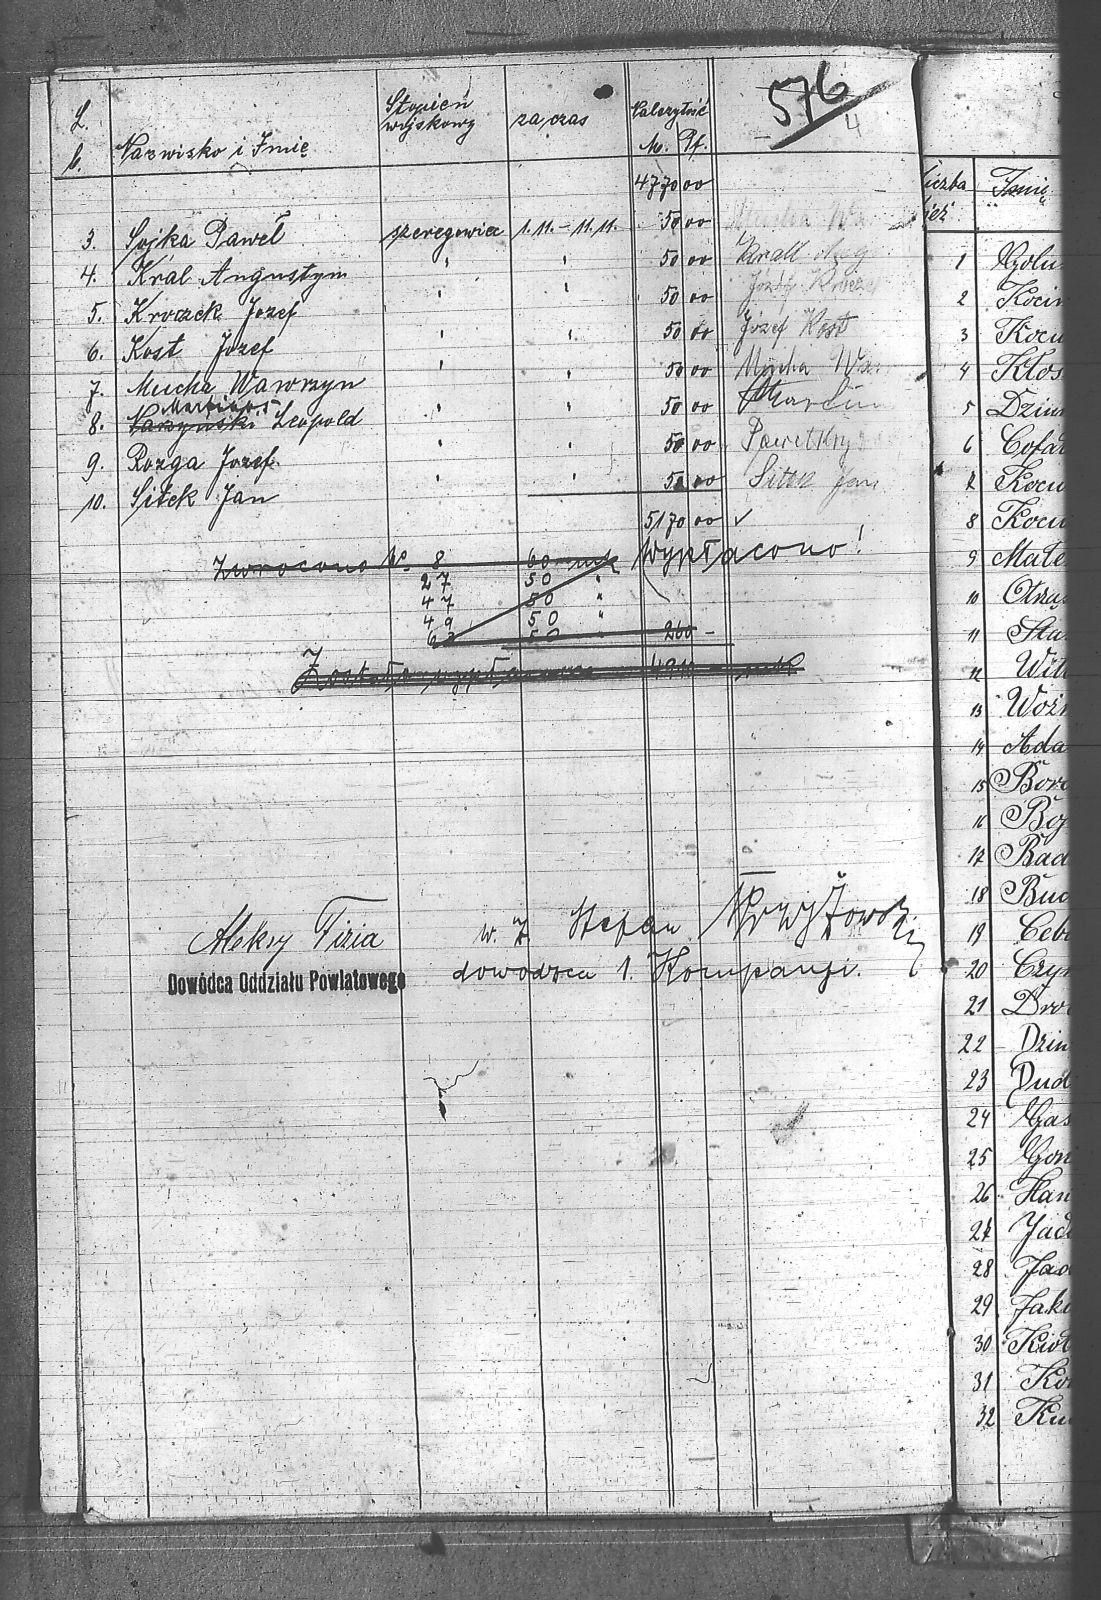 576
4
L. b. Nazwisko i Imię Stopień wojskowy za czas Należytość M. Pf.
4770 00
3. Sojka Paweł szeregowiec 1.11. – 11.11. 50 00 Mucha Wa
4. Kral Augustym " " 50 00 Krall
5. Kroczek Jozef " " 50 00 Józef
6. Kost Józef " " 50 00 Józef Kost
7. Mucha Wawrzyn " " 50 00 Mucha Waw
8. Leopold " " 50 00
9. Rozga Jozef. " " 50 00 Paweł
10. Sitek Jan " " 50 00 Sitek Jan
5170 00 ✓
Zwrócono No 8 60 mk Wypłacono!
27 50 "
47 50 "
49 50 "
50 " 260 –
Została wypłacona
Aleksy Fizia w. z. Stefan
Dowódca Oddziału Powiatowego dowodzca 1. Kompanji.
iczba Imię
1 Golu
2 Kocin
3 Kocu
4 Kłos
5 Dzium
6 Cofał
7 Kocu
8 Kocu
9 Małe
10 Otrzą
11 Sta
12 Wit
13 Woźn
14 Ada
15 Boro
16 Boj
17 Bad
18 Bud
19 Ceb
20 Czyr
21 Dro
22 Dzin
23 Dud
24 Gas
25 Gon
26 Han
27 Jac
28 Jad
29 Jak
30 Kiol
31 Ko
32 Ku